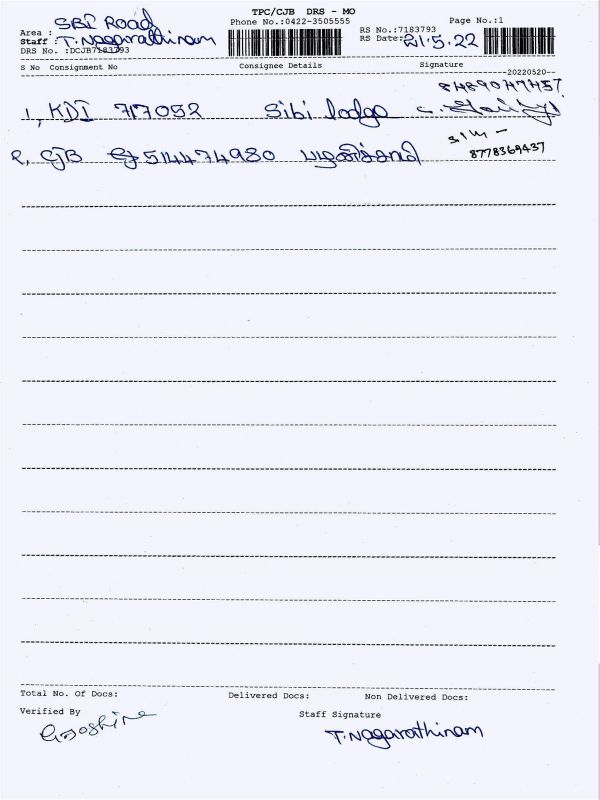 TPC/CJB DRS - MO
SBI Road
Phone No.:0422-3505555
Page No.:1
Area :
RS No.:7183793
Staff : T. Nagarathinam
RS Date: 21.5.22
DRS No. :DCJB7183793
S No Consignment No Consignee Details Signature
--20220520--
1, KDI 717052 Sibi lodge
2, CJB 514474980 பழனிச்சாமி
8778369437
Total No. Of Docs: Delivered Docs: Non Delivered Docs:
Verified By Staff Signature
T. Nagarathinam